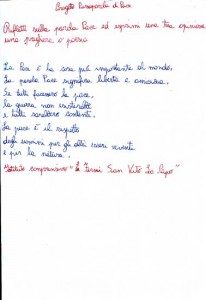 Progetto Passaparola di Pace
Rifletti sulla parola Pace ed esprimi una tua opinione
una preghiera o poesia
La Pace è la cosa più importante al mondo,
la parola Pace significa libertà e amicizia,
Se tutti facessero la pace,
la guerra non esisterebbe
e tutti sarebbero contenti,
La pace è il rispetto
degli uomini per gli altri esseri viventi
e per la natura,
Istituto comprensivo "L. Fermi San Vito Lo Capo"